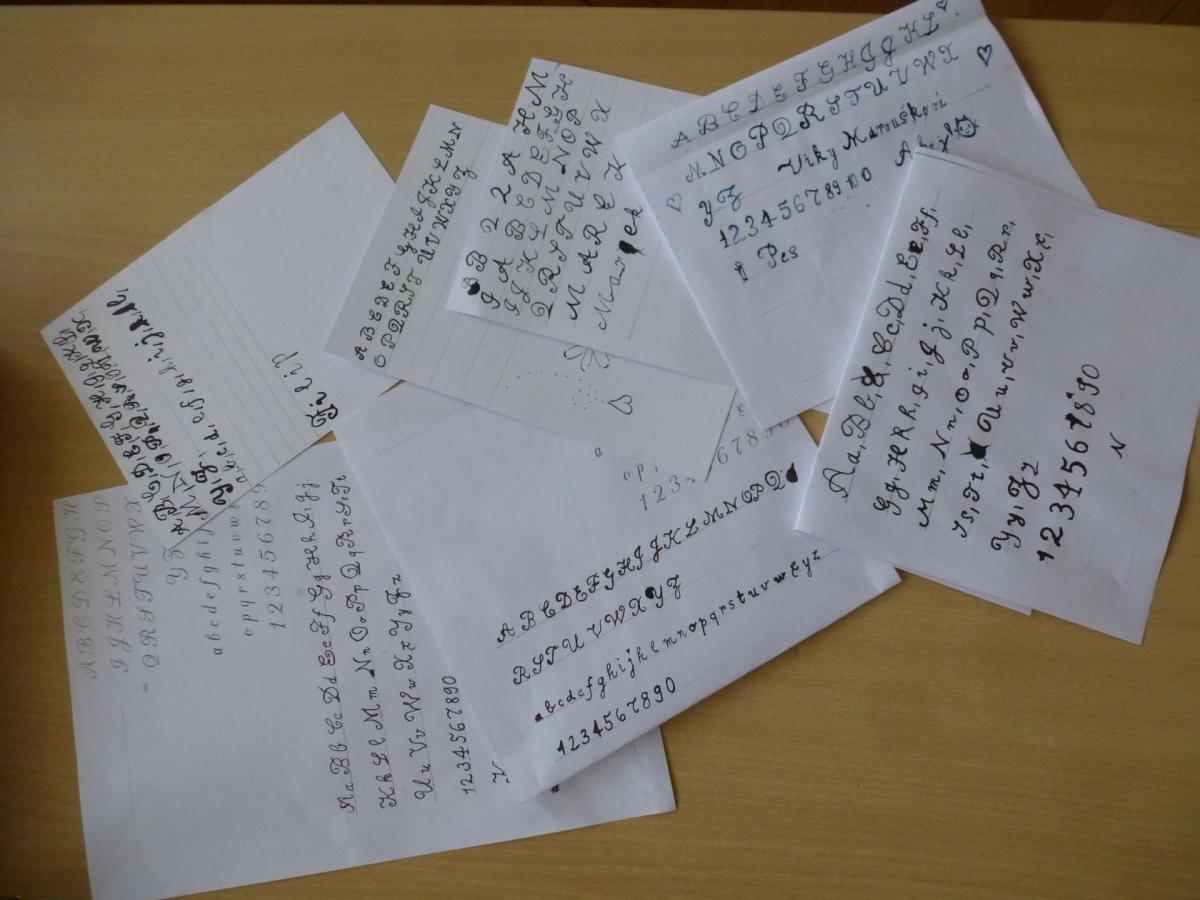 A B C D E F G H I J K L
M N O P Q R S T U V W X
Y Z Viky
1 2 3 4 5 6 7 8 9 10 0
Pes
B B 2 2 A H M
I A B C D E F G H
I J K L M N O P
Q R S T U V W X
M A R E K
Marek
A B C D E F G H I J K L M N
O P Q R S T U V W X Y Z
Filip
Aa, Bb, Cc, Dd, Ee, Ff,
Gg, Hh, Ii, Jj, Kk, Ll,
Mm, Nn, Oo, Pp, Qq, Rr,
Ss, Tt, Uu, Vv, Ww, Xx,
Yy, Zz
1 2 3 4 5 6 7 8 9 0
N
A B C D E F G H I J K L M N O P Q
R S T U V W X Y Z
a b c d e f g h i j k l m n o p q r s t u v w x y z
1 2 3 4 5 6 7 8 9 0
A B C D E F G H
I J K L M N O P
Q R S T U V W X
Y Z
a b c d e f g h i j
o p q r s t u v w
1 2 3 4 5 6 7 8 9
Aa Bb Cc Dd Ee Ff Gg Hh Ii Jj
Kk Ll Mm Nn Oo Pp Qq Rr Ss Tt
Uu Vv Ww Xx Yy Zz
1 2 3 4 5 6 7 8 9 0
K